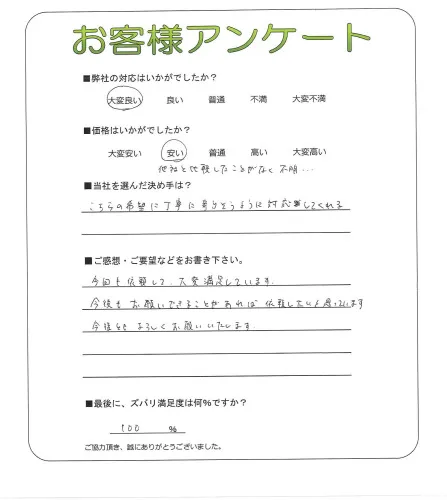 お客様アンケート
■弊社の対応はいかがでしたか?
大変良い 良い 普通 不満 大変不満
■価格はいかがでしたか?
大変安い 安い 普通 高い 大変高い
他社と比較したことがなく不明…
■当社を選んだ決め手は?
こちらの希望に丁寧に寄りそうように対応してくれる
■ご感想・ご要望などをお書き下さい。
今回も依頼して、大変満足しています。
今後もお願いできることがあれば依頼したいと思っています
今後もよろしくお願いいたします。
■最後に、ズバリ満足度は何%ですか?
100 %
ご協力頂き、誠にありがとうございました。